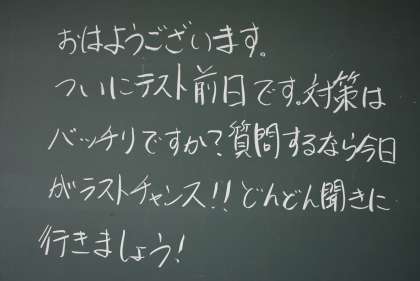 おはようございます。
ついにテスト前日です。対策は
バッチリですか?質問するなら今日
がラストチャンス!!どんどん聞きに
行きましょう!